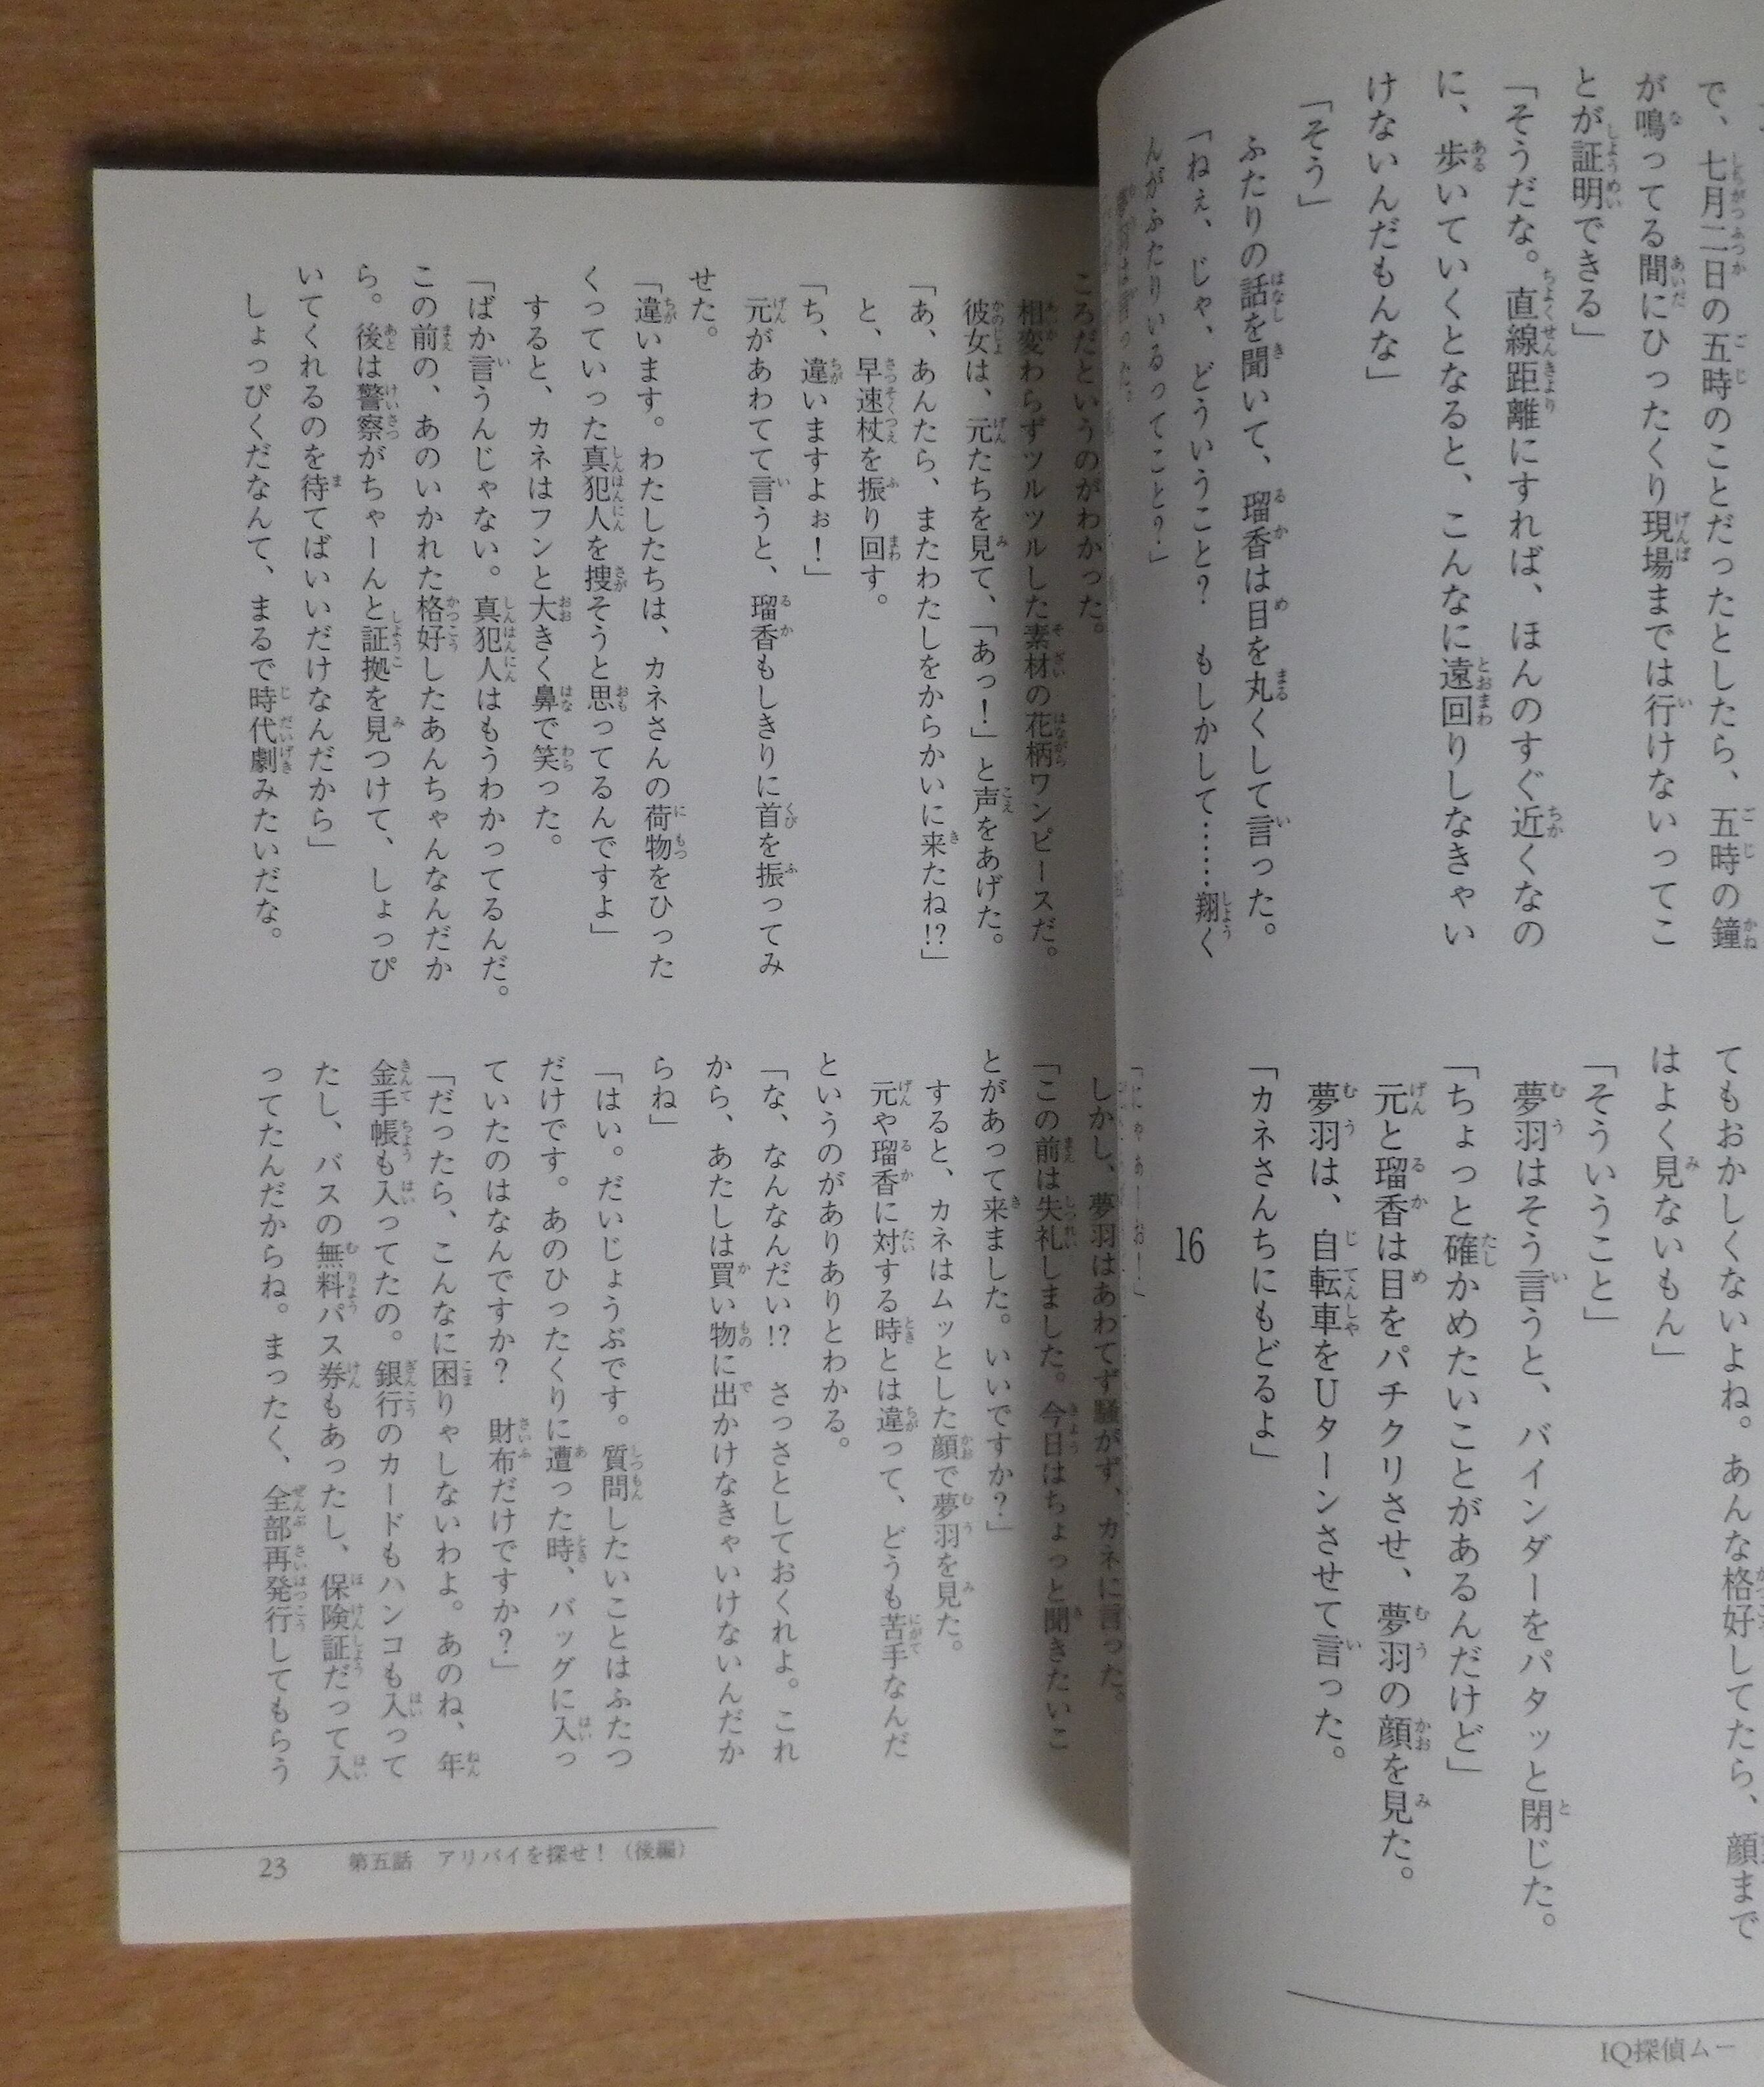 で、七月二日の五時のことだったとしたら、五時の鐘
が鳴ってる間にひったくり現場までは行けないってこ
とが証明できる」
「そうだな。直線距離にすれば、ほんのすぐ近くなの
に、歩いていくとなると、こんなに遠回りしなきゃい
けないんだもんな」
「そう」
ふたりの話を聞いて、瑠香は目を丸くして言った。
「ねぇ、じゃ、どういうこと？　もしかして……翔く
んがふたりいるってこと？」
てもおかしくないよね。あんな格好してたら、顔まで
はよく見ないもん」
「そういうこと」
夢羽はそう言うと、バインダーをパタッと閉じた。
「ちょっと確かめたいことがあるんだけど」
元と瑠香は目をパチクリさせ、夢羽の顔を見た。
夢羽は、自転車をUターンさせて言った。
「カネさんちにもどるよ」
16
「にゃあーお！」
IQ探偵ムー
ころだというのがわかった。
相変わらずツルツルした素材の花柄ワンピースだ。
彼女は、元たちを見て、「あっ！」と声をあげた。
「あ、あんたら、またわたしをからかいに来たね!?」
と、早速杖を振り回す。
「ち、違いますよぉ！」
元があわてて言うと、瑠香もしきりに首を振ってみ
せた。
「違います。わたしたちは、カネさんの荷物をひった
くっていった真犯人を捜そうと思ってるんですよ」
すると、カネはフンと大きく鼻で笑った。
「ばか言うんじゃない。真犯人はもうわかってるんだ。
この前の、あのいかれた格好したあんちゃんなんだか
ら。後は警察がちゃーんと証拠を見つけて、しょっぴ
いてくれるのを待てばいいだけなんだから」
しょっぴくだなんて、まるで時代劇みたいだな。
しかし、夢羽はあわてず騒がず、カネに言った。
「この前は失礼しました。今日はちょっと聞きたいこ
とがあって来ました。いいですか？」
すると、カネはムッとした顔で夢羽を見た。
元や瑠香に対する時とは違って、どうも苦手なんだ
というのがありありとわかる。
「な、なんなんだい!?　さっさとしておくれよ。これ
から、あたしは買い物に出かけなきゃいけないんだか
らね」
「はい。だいじょうぶです。質問したいことはふたつ
だけです。あのひったくりに遭った時、バッグに入っ
ていたのはなんですか？　財布だけですか？」
「だったら、こんなに困りゃしないわよ。あのね、年
金手帳も入ってたの。銀行のカードもハンコも入って
たし、バスの無料パス券もあったし、保険証だって入
ってたんだからね。まったく、全部再発行してもらう
23　第五話　アリバイを探せ！（後編）